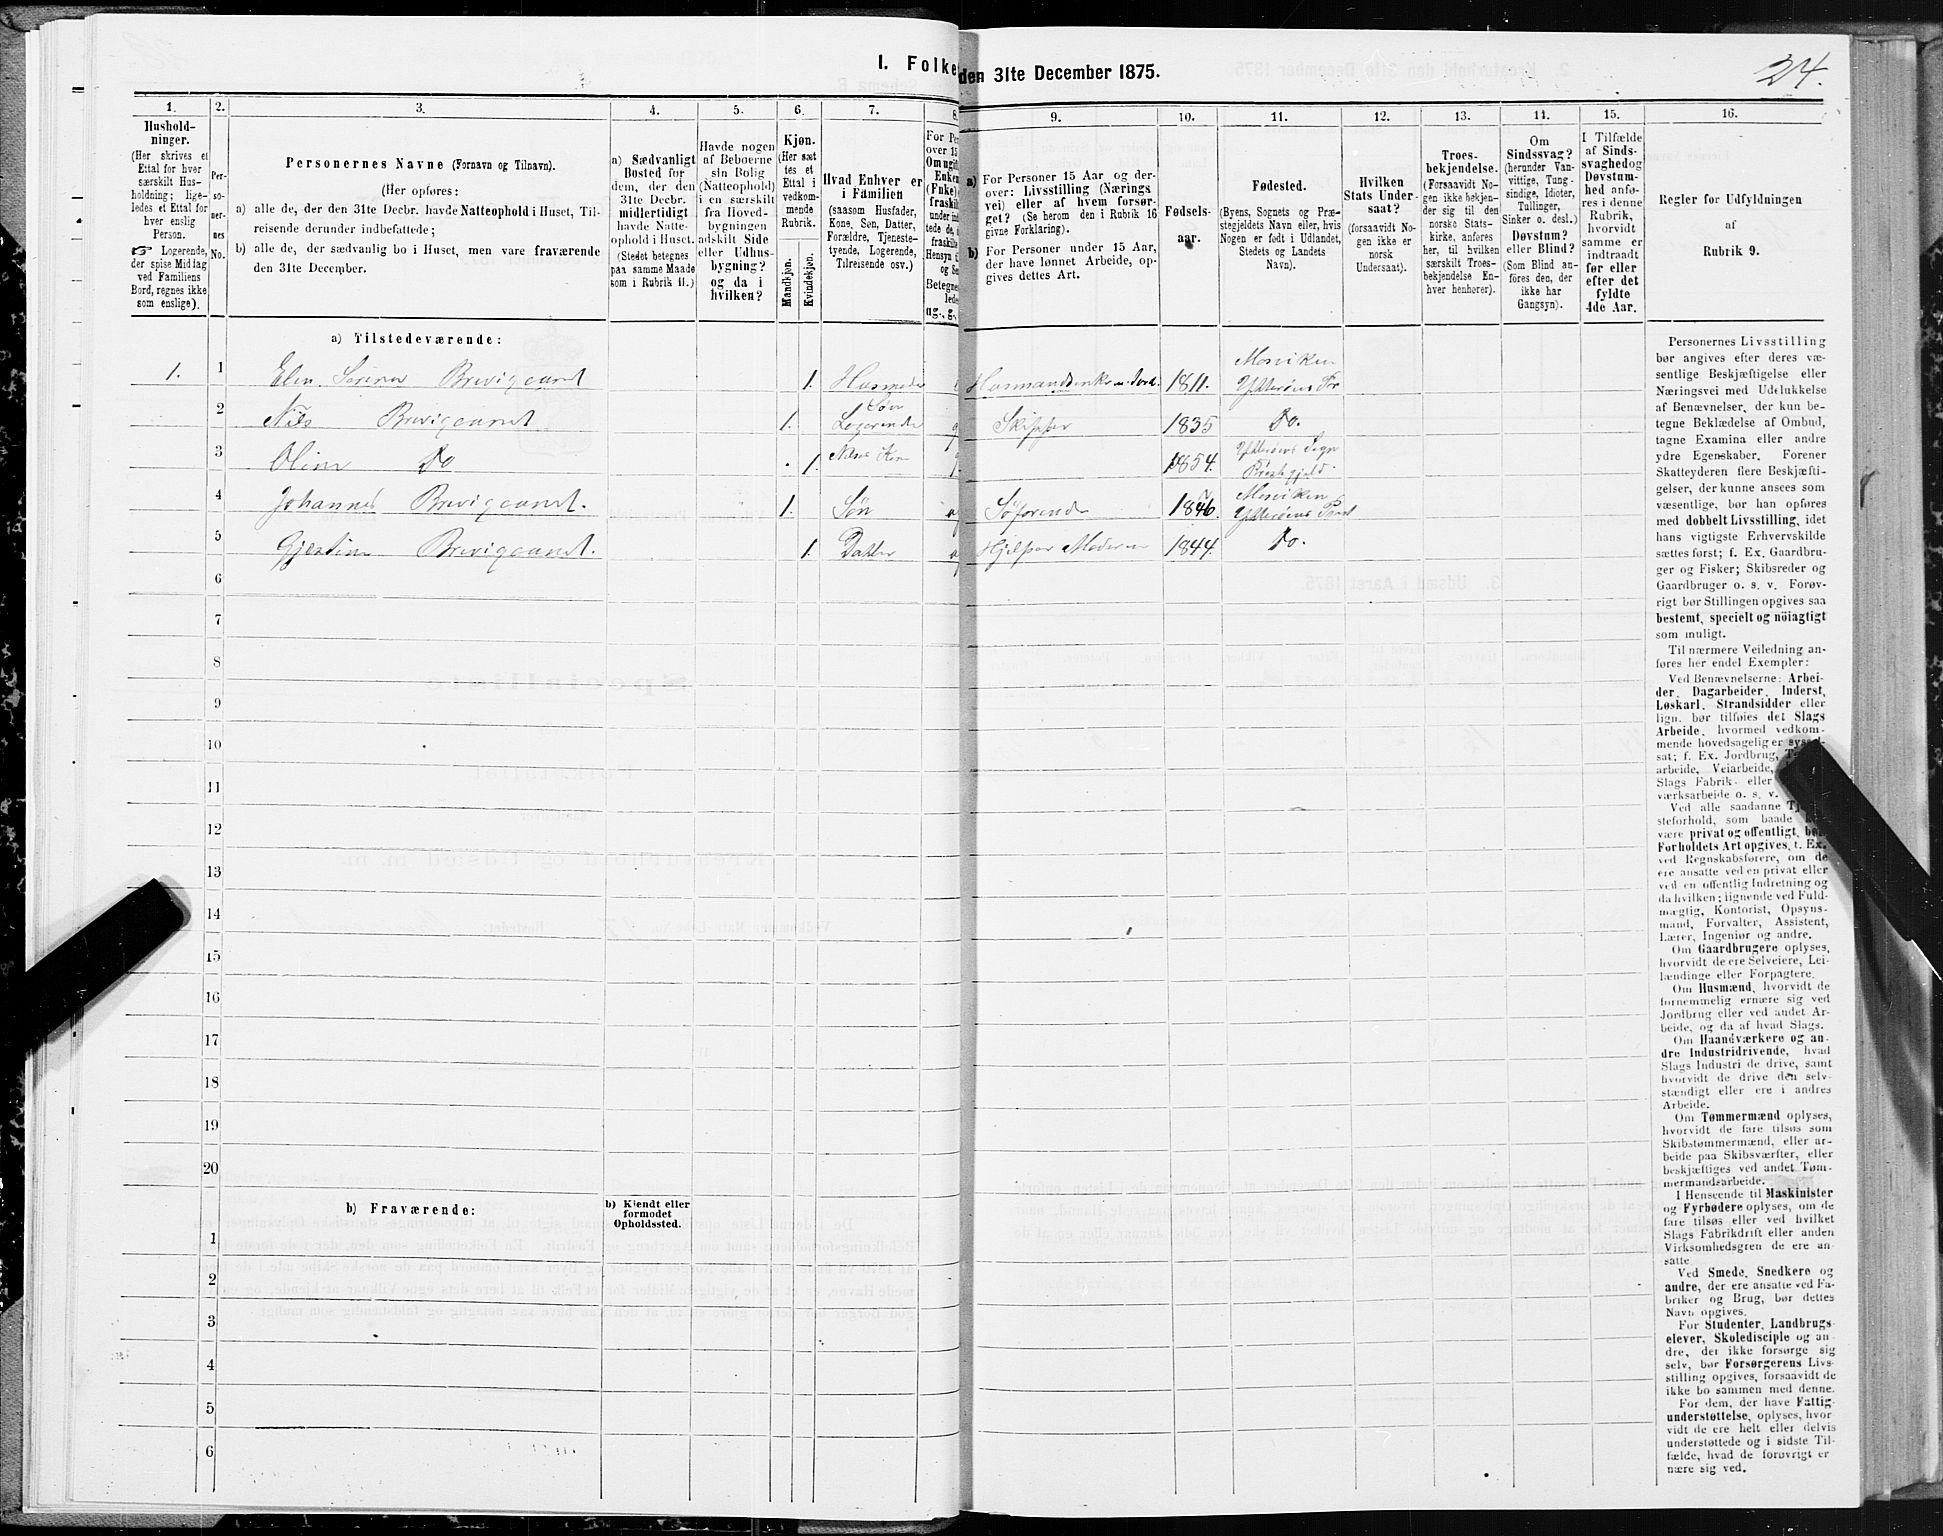 I. Folke
den 31te December 1875.
24.
1.
2.
3.
4.
5.
6.
7.
8.
9.
10.
11.
12.
13.
14.
15.
16.
Hushold-
ninger.
(Her skrives et
Ettal for hver
særskilt Hus-
holdning; lige-
ledes et Ettal for
hver enslig
Person.
☞ Logerende,
der spise Middag
ved Familiens
Bord, regnes ikke
som enslige).
Per-
so-
ner-
nes
No.
Personernes Navne (Fornavn og Tilnavn).
(Her opføres:
a) alle de, der den 31te Decbr. havde Natteophold i Huset, Til-
reisende derunder indbefattede;
b) alle de, der sædvanlig bo i Huset, men vare fraværende
den 31te December.
a) Sædvanligt
Bosted for
dem, der den
31te Decbr.
midlertidigt
havde Natte-
ophold i Huset.
(Stedet betegnes
paa samme Maade
som i Rubrik 11.)
Havde nogen
af Beboerne
sin Bolig
(Natteophold)
i en særskilt
fra Hoved-
bygningen
adskilt Side
eller Udhus-
bygning?
og da i
hvilken?
Kjøn.
(Her sæt
tes et
Ettal i
vedkom-
mende
Rubrik.
Mandkjøn.
Kvindekjøn.
Hvad Enhver er
i Familien
(saasom Husfader,
Kone, Søn, Datter,
Forældre, Tjeneste-
tyende, Logerende,
Tilreisende osv.)
For Pe
over 15
Om ugift
Enken
(Fnke)
fraskilt
under ind
tede de,
fraskilte
Hensyn t
og Se
Betegne
lede
ug., g.,
a) For Personer 15 Aar og der-
over: Livsstilling (Nærings
vei) eller af hvem forsør-
get? (Se herom den i Rubrik 16
givne Forklaring).
b) For Personer under 15 Aar,
der have lønnet Arbeide, op-
gives dettes Art.
Fødsels-
aar.
Fødested.
(Byens, Sognets og Præ-
stegjeldets Navn eller, hvis
Nogen er født i Udlandet,
Stedets og Landets
Navn).
Hvilken
Stats Under-
saat?
(forsaavidt No-
gen ikke er
norsk
Undersaat).
Troes-
bekjendelse.
(Forsaavidt No-
gen ikke bekjen-
der sig til den
norske Stats-
kirke, anføres
her, til hvilken
særskilt Troes-
bekjendelse En-
hver henhører).
Om
Sindssvag?
(herunder Van-
vittige, Tung-
sindige, Idioter,
Tullinger,
Sinker o. desl.)
Døvstum?
eller Blind?
(Som Blind an-
føres den, der
ikke har
Gangsyn).
I Tilfælde
af Sinds-
svaghed og
Døvstum-
hed anfø-
res i denne
Rubrik,
hvorvidt
samme er
indtraadt
før eller
efter det
fyldte
4de Aar.
Regler for Udfyldningen
af
Rubrik 9.
a) Tilstedeværende:
1. 1 Elen Serine Breviqaunet 1. Husmoder 1811. Mosviken
Ytterøens Pr
2 Nils Breviqaunet 1. Søn
Logerende g Skipper 1835 Do.
3 Oline Do 1. Nils's Kone g 1854. Ytterøens Sogn
Præstegjeld.
4 Johannes Breviqaunet. 1. Søn Søfarende 1846. Mosviken
Ytterøens
5 Gjestine Breviqaunet. 1. Datter Hjelper Moderen 1844. Do.
6
7
8
9
10
11
12
13
14
15
16
17
18
19
20
b) Fraværende:
b) Kjendt eller
formodet
Opholdssted.
1
2
3
4
5
6
Personernes Livsstilling
bør angives efter deres væ-
sentlige Beskjæftigelse eller
Næringsvei med Udelukkelse
af Benævnelser, der kun be-
tegne Beklædelse af Ombud,
tagne Examina eller andre
ydre Egenskaber. Forener
Skatteyderen flere Beskjæfti-
gelser, der kunne ansees som
væsentlige, bør han opføres
med dobbelt Livsstilling, idet
hans vigtigste Erhvervskilde
sættes først; f. Ex. Gaardbru-
ger og Fisker; Skibsreder og
Gaardbruger o. s. v. Forøv-
rigt bør Stillingen opgives saa
bestemt, specielt og nöiagtigt
som muligt.
Til nærmere Veiledning an-
føres her endel Exempler:
Ved Benævnelserne: Arbei-
der, Dagarbeider, Inderst,
Løskarl, Strandsidder eller
lign. bør tilføies det Slags
Arbeide, hvormed vedkom-
mende hovedsagelig er syssel-
sat; f. Ex. Jordbrug,
arbeide, Veiarbeide,
Slags Fabrik- eller
værksarbeide o. s. v.
Ved alle saadanne
steforhold, som baade
være privat og offentligt, bør
Forholdets Art opgives, t. Ex.
ved Regnskabsførere, om de
ere ansatte ved en privat eller
ved en offentlig Indretning og
da hvilken; lignende ved Fuld-
mægtig, Kontorist, Opsyns-
mand, Forvalter, Assistent,
Lærer, Ingeniør og andre.
Om Gaardbrugere oplyses,
hvorvidt de ere Selveiere, Lei-
lændinge eller Forpagtere.
Om Husmænd, hvorvidt de
fornemmelig ernære sig ved
Jordbrug eller ved andet Ar-
beide, og da af hvad Slags.
Om Haandværkere og an-
dre Industridrivende, hvad
Slags Industri de drive, samt
hvorvidt de drive den selv-
stændigt eller ere i andres
Arbeide.
Om Tømmermænd oplyses,
hvorvidt de fare tilsøs som
Skibstømmermænd, eller ar-
beide paa Skibsværfter, eller
beskjæftiges ved andet Tøm-
mermandsarbeide.
I Henseende til Maskinister
og Fyrbødere oplyses, om de
fare tilsøs eller ved hvilket
Slags Fabrikdrift eller anden
Virksomhedsgren de ere an-
satte.
Ved Smede, Snedkere og
andre, der ere ansatte ved Fa-
briker og Brug, bør dettes
Navn opgives.
For Studenter, Landbrugs-
elever, Skoledisciple og an-
dre, der ikke forsørge sig
selv, bør Forsørgerens Livs-
stilling opgives, forsaavidt de
ikke bo sammen med denne.
For dem, der have Fattig-
understøttelse, oplyses, hvor
vidt de ere helt eller delvis
understøttede og i sidste Til-
fælde, hvad de forøvrigt er
nære sig ved.